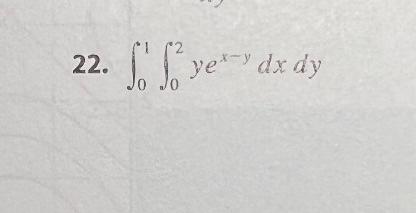 22. ∫₀¹ ∫₀² ye^{x−y} dx dy